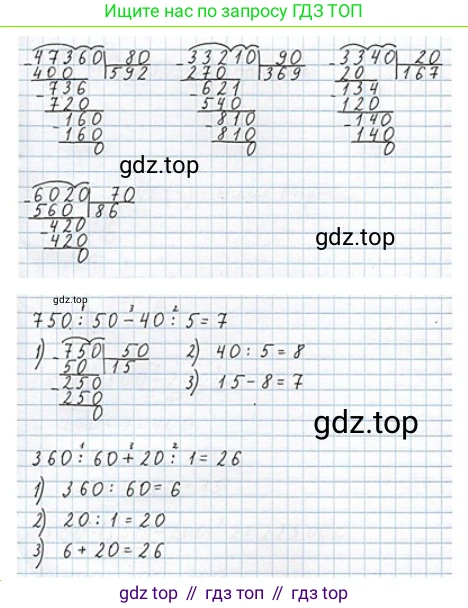 Ищите нас по запросу ГДЗ ТОП
47360 80 33210 90 3340 20
400 592 270 369 20 167
- 736 - 621 - 134
720 540 120
- 160 - 810 - 140
160 810 140
0 0 0
gdz.top
- 6020 70
560 86
- 420
420
0
gdz.top
gdz.top
1 3 2
750 : 50 - 40 : 5 = 7
1) - 750 50 2) 40 : 5 = 8
50 15 3) 15 - 8 = 7
- 250
250
0
gdz.top
1 3 2
360 : 60 + 20 : 1 = 26
1) 360 : 60 = 6
2) 20 : 1 = 20
3) 6 + 20 = 26
gdz.top // гдз топ // гдз.топ